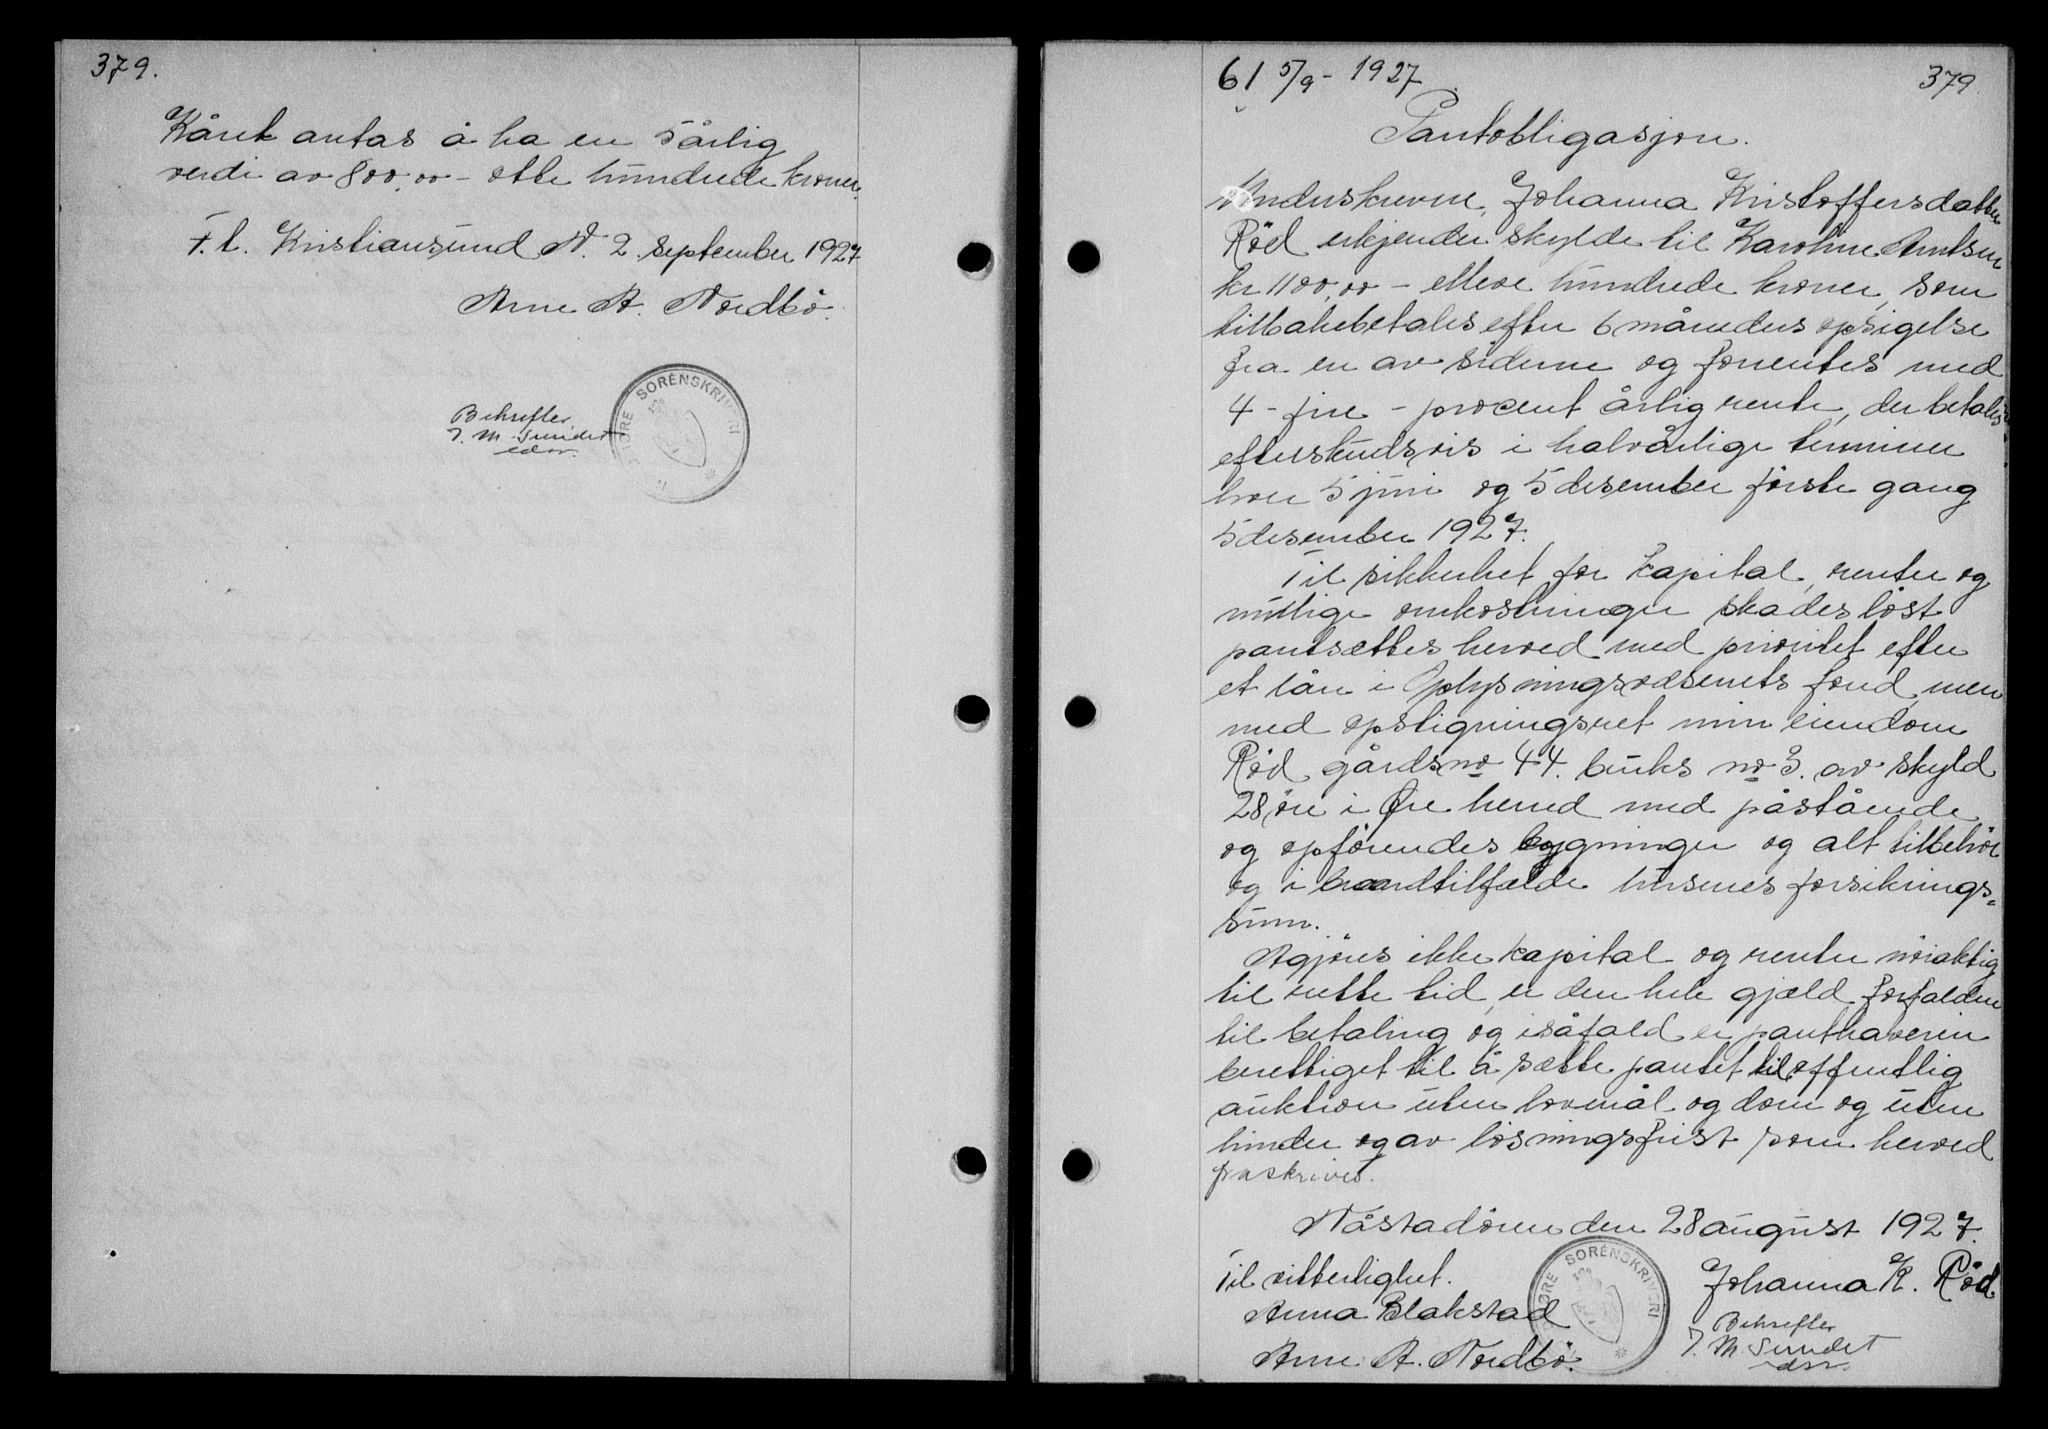 379.
Kåret antas å ha en 5årlig
verdi av 800,00 - otte hundrede kroner.
F. t. Kristiansund N. 2. september 1927
Arne A. Nordbö.
Bekreftes
J. M. Sundet
edsv.
NORDMØRE SORENSKRIVERI
61 5/9 - 1927. 379
Pantobligasjon.
Underskrevne, Johanna Kristoffersdatter
Röd erkjender skylde til Karoline Arntsen
kr 1100,00 - elleve hundrede kroner, som
tilbakebetales efter 6 måneders opsigelse
fra en av siderne og forrentes med
4 - fire - procent årlig rente, der betales
efterskudsvis i halvårlige terminer
hver 5 juni og 5 desember første gang
5 desember 1927.
Til sikkerhet for kapital, renter og
mulige omkostninger skadesløst
pantsættes herved med prioritet efter
et lån i Oplysningsvæsenets fond, men
med opstigningsret min eiendom
Röd gårdsno 44. bruks no 3. av skyld
28 øre i Øre herred med påstående
og opförendes bygninger og alt tilbehör
og i brandtilfælde husenes forsikrings=
sum.
Avgjøres ikke kapital og renter nöiaktig
til rette tid, er den hele gjæld forfalden
til betaling og isåfald er panthaveren
berettiget til å sætte pantet til offentlig
auktion uten lovmål og dom og uten
hinder og av løsningsfrist som herved
fraskrives.
Nåstadören den 28 august 1927.
Til vitterlighet. Johanna K. Röd
Anna Blakstad
Arne A. Nordbö.
Bekreftes
J. M. Sundet
edsv.
NORDMØRE SORENSKRIVERI